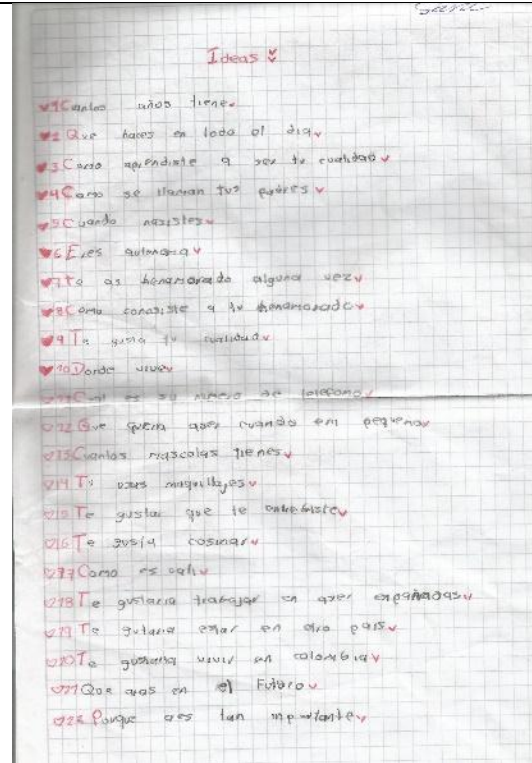 Ideas
1 Cuantos años tiene
2 Que haces en todo el dia
3 Como aprendiste a ser tu cualidad
4 Como se llaman tus padres
5 Cuando nasistes
6 Eres autonoma
7 Te as henamorado alguna vez
8 Como conosiste a tu henamorado
9 Te gusta tu cualidad
10 Donde vives
11 Cual es su numero de telefono
12 Que queria aser cuando era pequeña
13 Cuantos mascotas tienes
14 Tu usas maquillajes
15 Te gusta que te
16 Te gusta cosinar
17 Como es cali
18 Te gustaria trabajar en aser
19 Te gutaria estar en otro pais
20 Te gustaria vivir en colombia
21 Que aras en el Futuro
Porque eres tan inportante